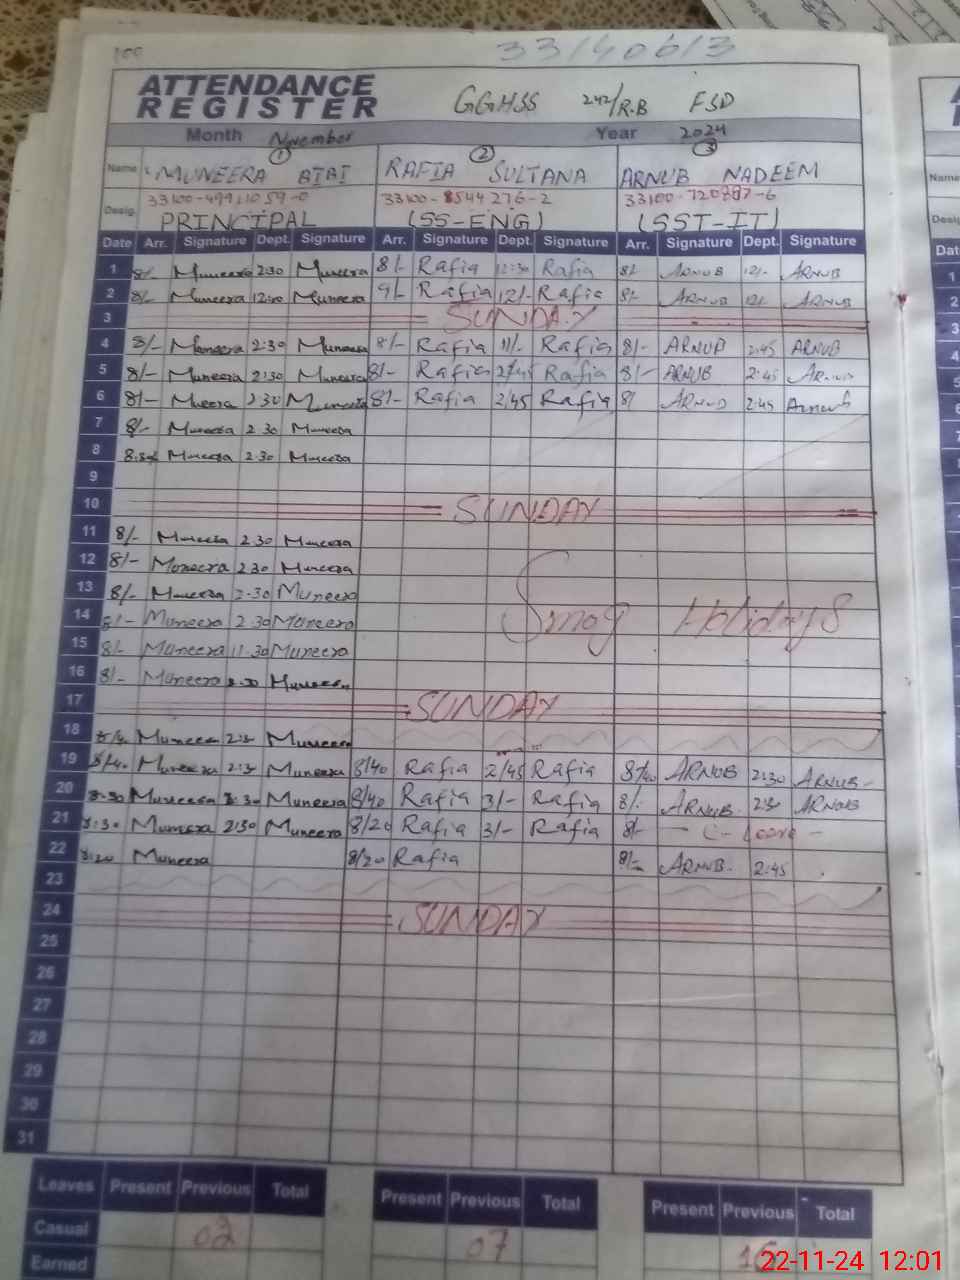 33140613
ATTENDANCE
REGISTER GGHSS 242/R.B FSD
Month November Year 2024
1 2 3
Name MUNEERA BIBI RAFIA SULTANA ARNUB NADEEM
33100-8544276-2
Desig. PRINCIPAL (SS-ENG) (SST-IT)
Date Arr. Signature Dept. Signature Arr. Signature Dept. Signature Arr. Signature Dept. Signature
1 8/- Muneera 2:30 Muneera 8/- Rafia 12:30 Rafia 8/ ARNUB 12/- ARNUB
2 8/- Muneera 12:00 Muneera 9/- Rafia 12/- Rafia 8/- ARNUB 12/ ARNUB
3 SUNDAY
4 8/- Muneera 2:30 Muneera 8/- Rafia 11/- Rafia 8/- ARNUB 2:45 ARNUB
5 8/- Muneera 2:30 Muneera 8/- Rafia 2/45 Rafia 8/- ARNUB 2:45 Arnub
6 8/- Mueera 2:30 Muneera 8/- Rafia 2/45 Rafia 8/ ARNUB 2:45 Arnub
7 8/- Muneera 2.30 Muneera
8 8.30 Muneera 2.30 Muneera
9
10 SUNDAY
11 8/- Muneera 2.30 Muneera
12 8/- Muneera 2.30 Muneera
13 8/- Muneera 2.30 Muneera
14 8/- Muneera 2.30 Muneera
Smog Holidays
15 8/- Muneera 11.30 Muneera
16 8/- Muneera 2.30 Muneera
17 SUNDAY
18 Muneera Muneera
19 8/40 Muneera Muneera 8/40 Rafia 2/45 Rafia 8/40 ARNUB 2:30 ARNUB-
20 8:30 Muneera 2:30 Muneera 8/40 Rafia 3/- Rafia 8/- ARNUB 2:30 ARNUB
21 8:30 Muneera 2:30 Muneera 8/20 Rafia 3/- Rafia 8/- - C- Leave -
22 8:20 Muneera 8/20 Rafia 8/- ARNUB. 2:45
23
24 SUNDAY
25
26
27
28
29
30
31
Leaves Present Previous Total Present Previous Total Present Previous Total
Casual 02 07
Earned
22-11-24 12:01
Name
Desig
Date
1
2
3
4
5
6
7
8
9
10
11
12